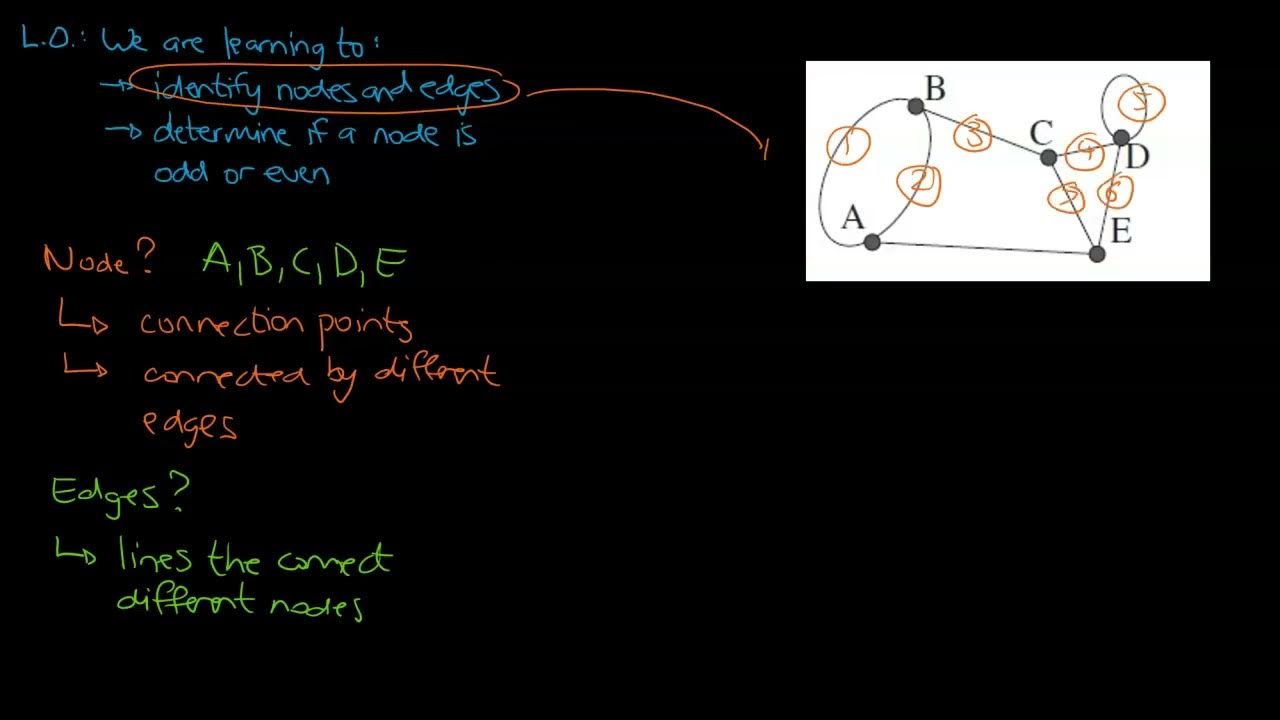 L.O.: We are learning to:
→ identify nodes and edges
→ determine if a node is
odd or even
Node? A, B, C, D, E
↳ connection points
↳ connected by different
edges
Edges?
↳ lines the connect
different nodes
B
5
1
3
C
4
D
2
5
6
A
E